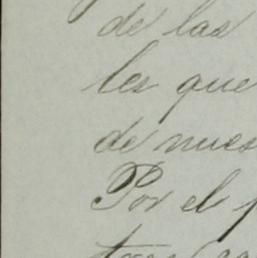 de las
les que
de nues
Por el p